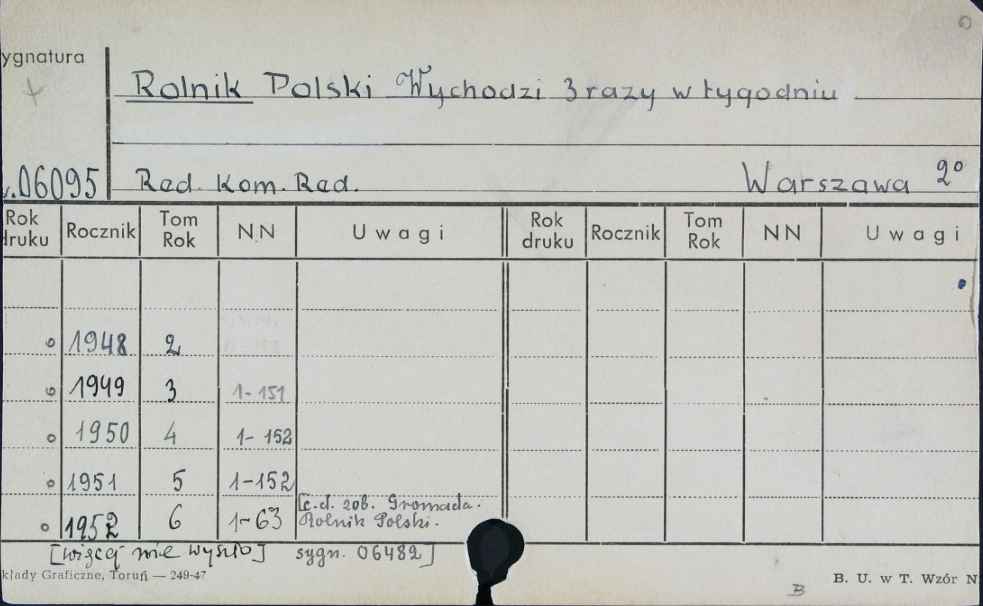 ygnatura
Rolnik Polski Wychodzi 3 razy w tygodniu
.06095 Red. Kom. Red. Warszawa 2º
Rok druku Rocznik Tom Rok NN Uwagi Rok druku Rocznik Tom Rok NN Uwagi
1948 2
1949 3 1-151
1950 4 1-152
1951 5 1-152
1952 6 1-63 [c.d. zob. Gromada.
Rolnik Polski.
[więcej nie wyszło] sygn. 06482]
kłady Graficzne, Toruń — 249-47
B. U. w T. Wzór N
B